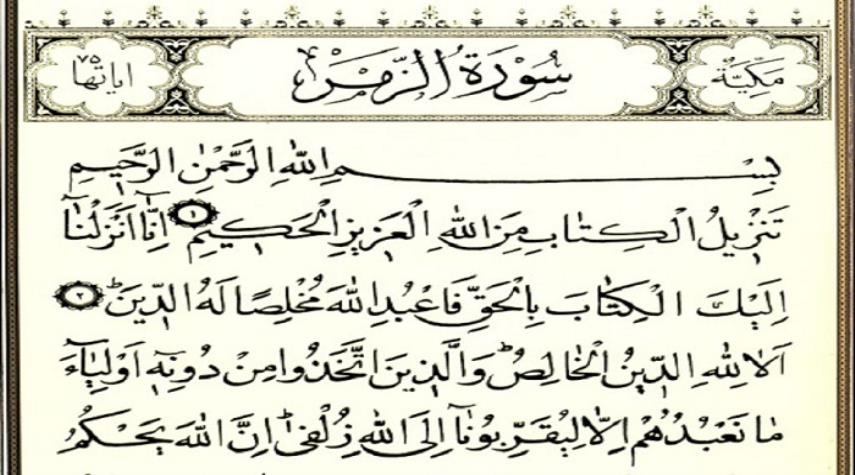 مَكِّيَّةٌ سُورَةُ الزُّمَرِ اٰيَاتُهَا ٧٥
بِسْمِ اللّٰهِ الرَّحْمٰنِ الرَّحٖيمِ
تَنْزٖيلُ الْكِتَابِ مِنَ اللّٰهِ الْعَزٖيزِ الْحَكٖيمِ ١ اِنَّٓا اَنْزَلْنَٓا
اِلَيْكَ الْكِتَابَ بِالْحَقِّ فَاعْبُدِ اللّٰهَ مُخْلِصًا لَهُ الدّٖينَؕ ٢
اَلَا لِلّٰهِ الدّٖينُ الْخَالِصُؕ وَالَّذٖينَ اتَّخَذُوا مِنْ دُونِهٖٓ اَوْلِيَٓاءَ
مَا نَعْبُدُهُمْ اِلَّا لِيُقَرِّبُونَٓا اِلَى اللّٰهِ زُلْفٰىؕ اِنَّ اللّٰهَ يَحْكُمُ